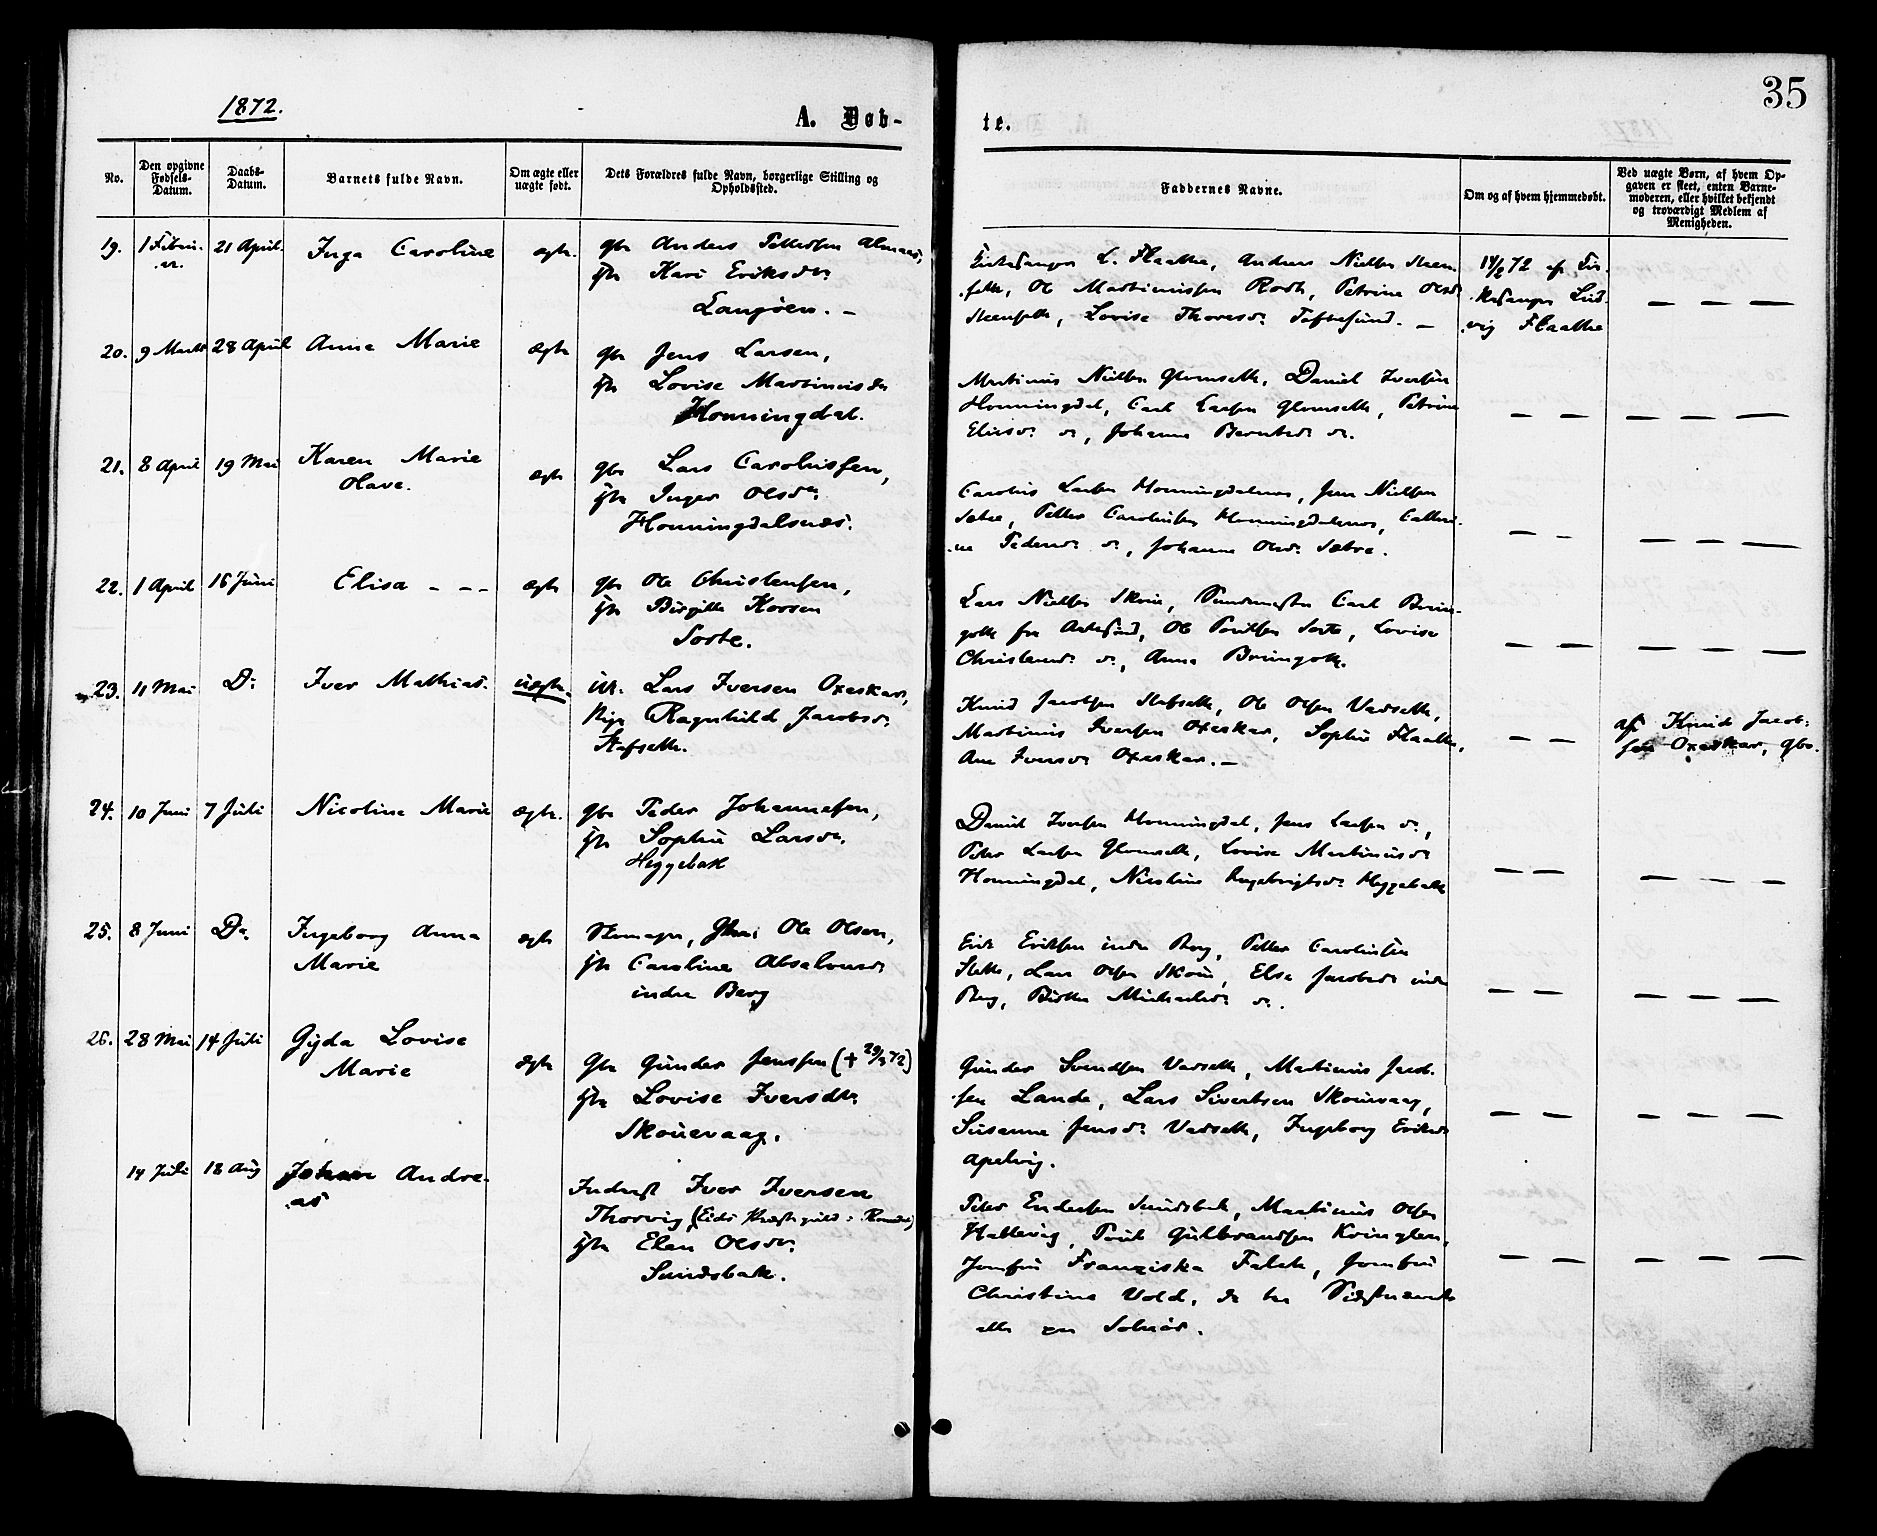 1872.
A. Døb-
te.
35
No.
Den opgivne
Fødsels-
Datum.
Daabs-
Datum.
Barnets fulde Navn.
Om ægte eller
uægte født.
Dets Forældres fulde Navn, borgerlige Stilling og
Opholdssted.
Faddernes Navne.
Om og af hvem hjemmedøbt.
Ved uægte Børn, af hvem Op-
gaven er skeet, enten Barne-
moderen, eller hvilket bekjendt
og troværdigt Medlem af
Menigheden.
19. 1 Febru-
ar.
21 April.
Inga Caroline
ægte.
Anders Pettersen
Kari Eriksdr
Langøen. -
Kirkesanger L. Flaathe, Andreas Nielsen
Ole Martinussen Petrine Olsdr
Lovise Thoresdr Toftesund. -
14/2 72 af Kir-
kesanger Lud-
vig Flaathe
— — —
20. 9 Marts 28 April Anne Marie ægte
Gbr Jens Larsen,
Lovise Martinusdr
Honningdal.
Martinus Nielsen Glomseth, Daniel Iversen
Honningdal, Carl Larsen Glomseth, Petrine
Eliasdr do, Johanne Berntsdr do.
— —
— — —
21. 8 April 19 Mai Karen Marie
Olave.
ægte
Gbr Lars Carolussen,
Inger Olsdr
Honningdalsnæs.
Carolus Larsen Honningdalsnæs, Jens Nielsen
Sætre, Petter Carolussen Honningdalsnæs, Cathri-
ne Pedersdr do, Johanne Olsdr Sætre.
— —
— — —
22. 1 April 16 Juni Elisa - - - ægte
Gbr Ole Christensen,
Birgitte
Sorte.
Lars Nielsen Skoue, Carl Brun-
Ole Poulsen Sorte, Lovise
Christensdr do, Anna
— —
— — —
23. 11 Mai Do Iver Mathias. uægte.
Lars Iversen Oxeskar,
Pige Ragnhild Jacobsdr
Stafseth.
Knud Jacobsen Stafseth, Ole Olsen Vadseth,
Martinus Iversen Oxeskar, Sophie Flaathe,
Ane Iversdr Oxeskar. -
— —
af Knud Jacob-
sen Oxeskar, Gbr.
24. 10 Juni 7 Juli Nicoline Marie ægte.
Gbr Peder Johannesen,
Sophie Larsdr
Heggebak
Daniel Iversen Honningdal, Jens Larsen do,
Peter Larsen Glomseth, Lovise Martinusdr
Honningdal, Ingebrigtsdr Heggebak
— —
— — —
25. 8 Juni Do. Ingeborg Anna
Marie
ægte
Skomager, Ole Olsen,
Caroline Absalonsdr
indre Berg
Erik Eriksen indre Berg, Petter Carolussen
Slette, Lars Olsen Skoue, Else Jacobsdr indre
Berg, Michaelsdr do.
— —
— — —
26. 28 Mai 14 Juli Gyda Lovise
Marie
ægte
Gbr Gunder Jenssen († 72)
Lovise Iversdtr
Skouevaag.
Gunder Svendsen Vadseth, Martinus Jacob-
sen Lande, Lars Sivertsen Skouevaag,
Susanne Jensdr Vadseth, Ingeborg Eriksdr
Apelvig.
— —
— — —
14 Juli 18 Aug Johan Andre-
as
Inderst Iver Iversen
Thorvig (Eids Præstegjeld i Romsdal)
Elen Olsdr
Sundsbak.
Peter Endersen Sundsbak, Martinus Olsen
Hallevig, Gulbrandsen Kringlen,
Jomfru Franziska Falch, Jomfru
Christine Vold,
— —
— — —